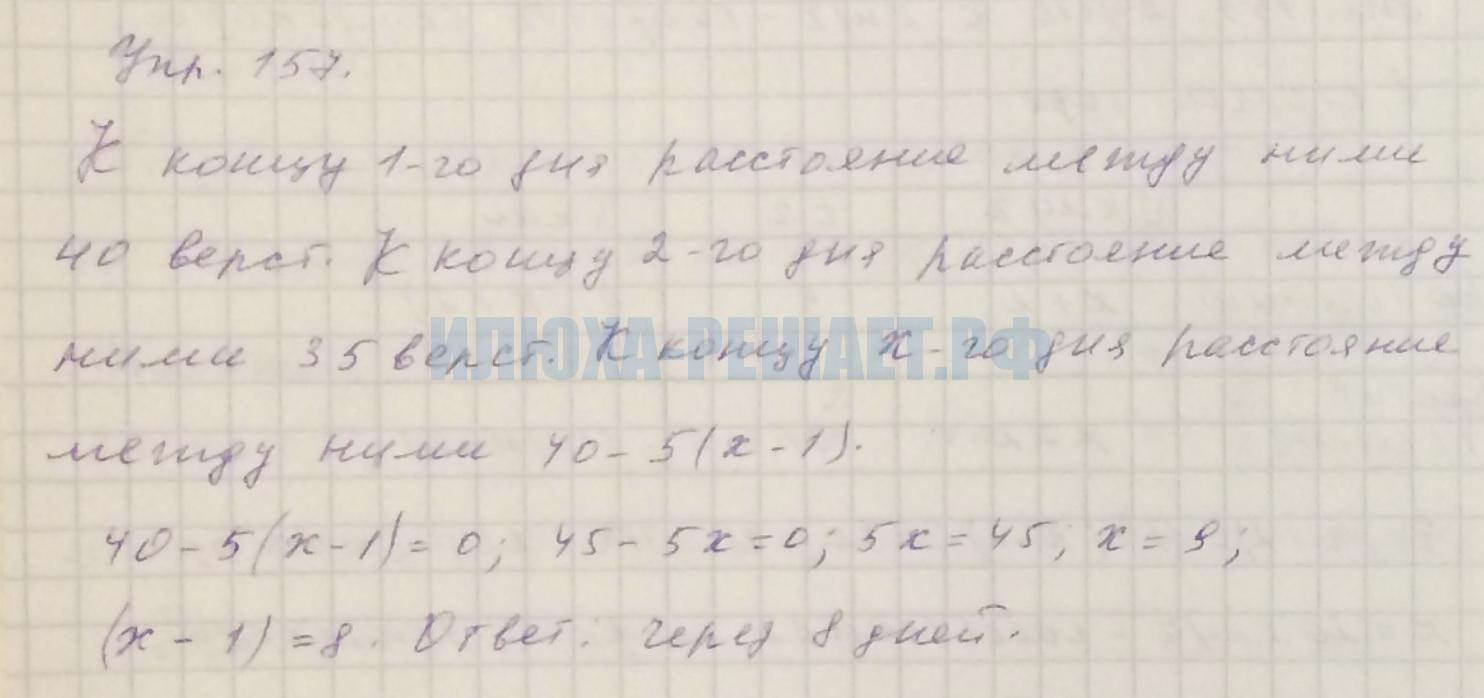 Упр. 157.
К концу 1-го дня расстояние между ними
40 верст. К концу 2-го дня расстояние между
ними 35 верст. К концу x-го дня расстояние
ИЛЮХА-РЕШАЕТ.РФ
между ними 40-5(x-1).
40-5(x-1)=0; 45-5x=0; 5x=45; x=9;
(x-1)=8. Ответ: через 8 дней.